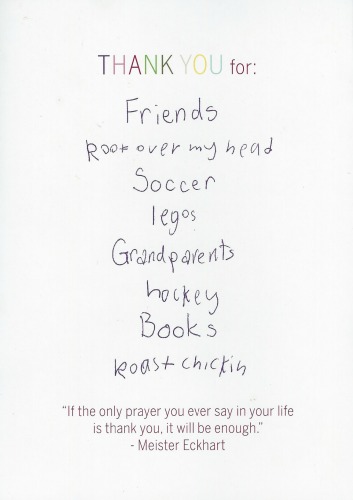 THANK YOU for:
Friends
Roof over my head
Soccer
legos
Grandparents
hockey
Books
Roast chickin
“If the only prayer you ever say in your life
is thank you, it will be enough.”
- Meister Eckhart